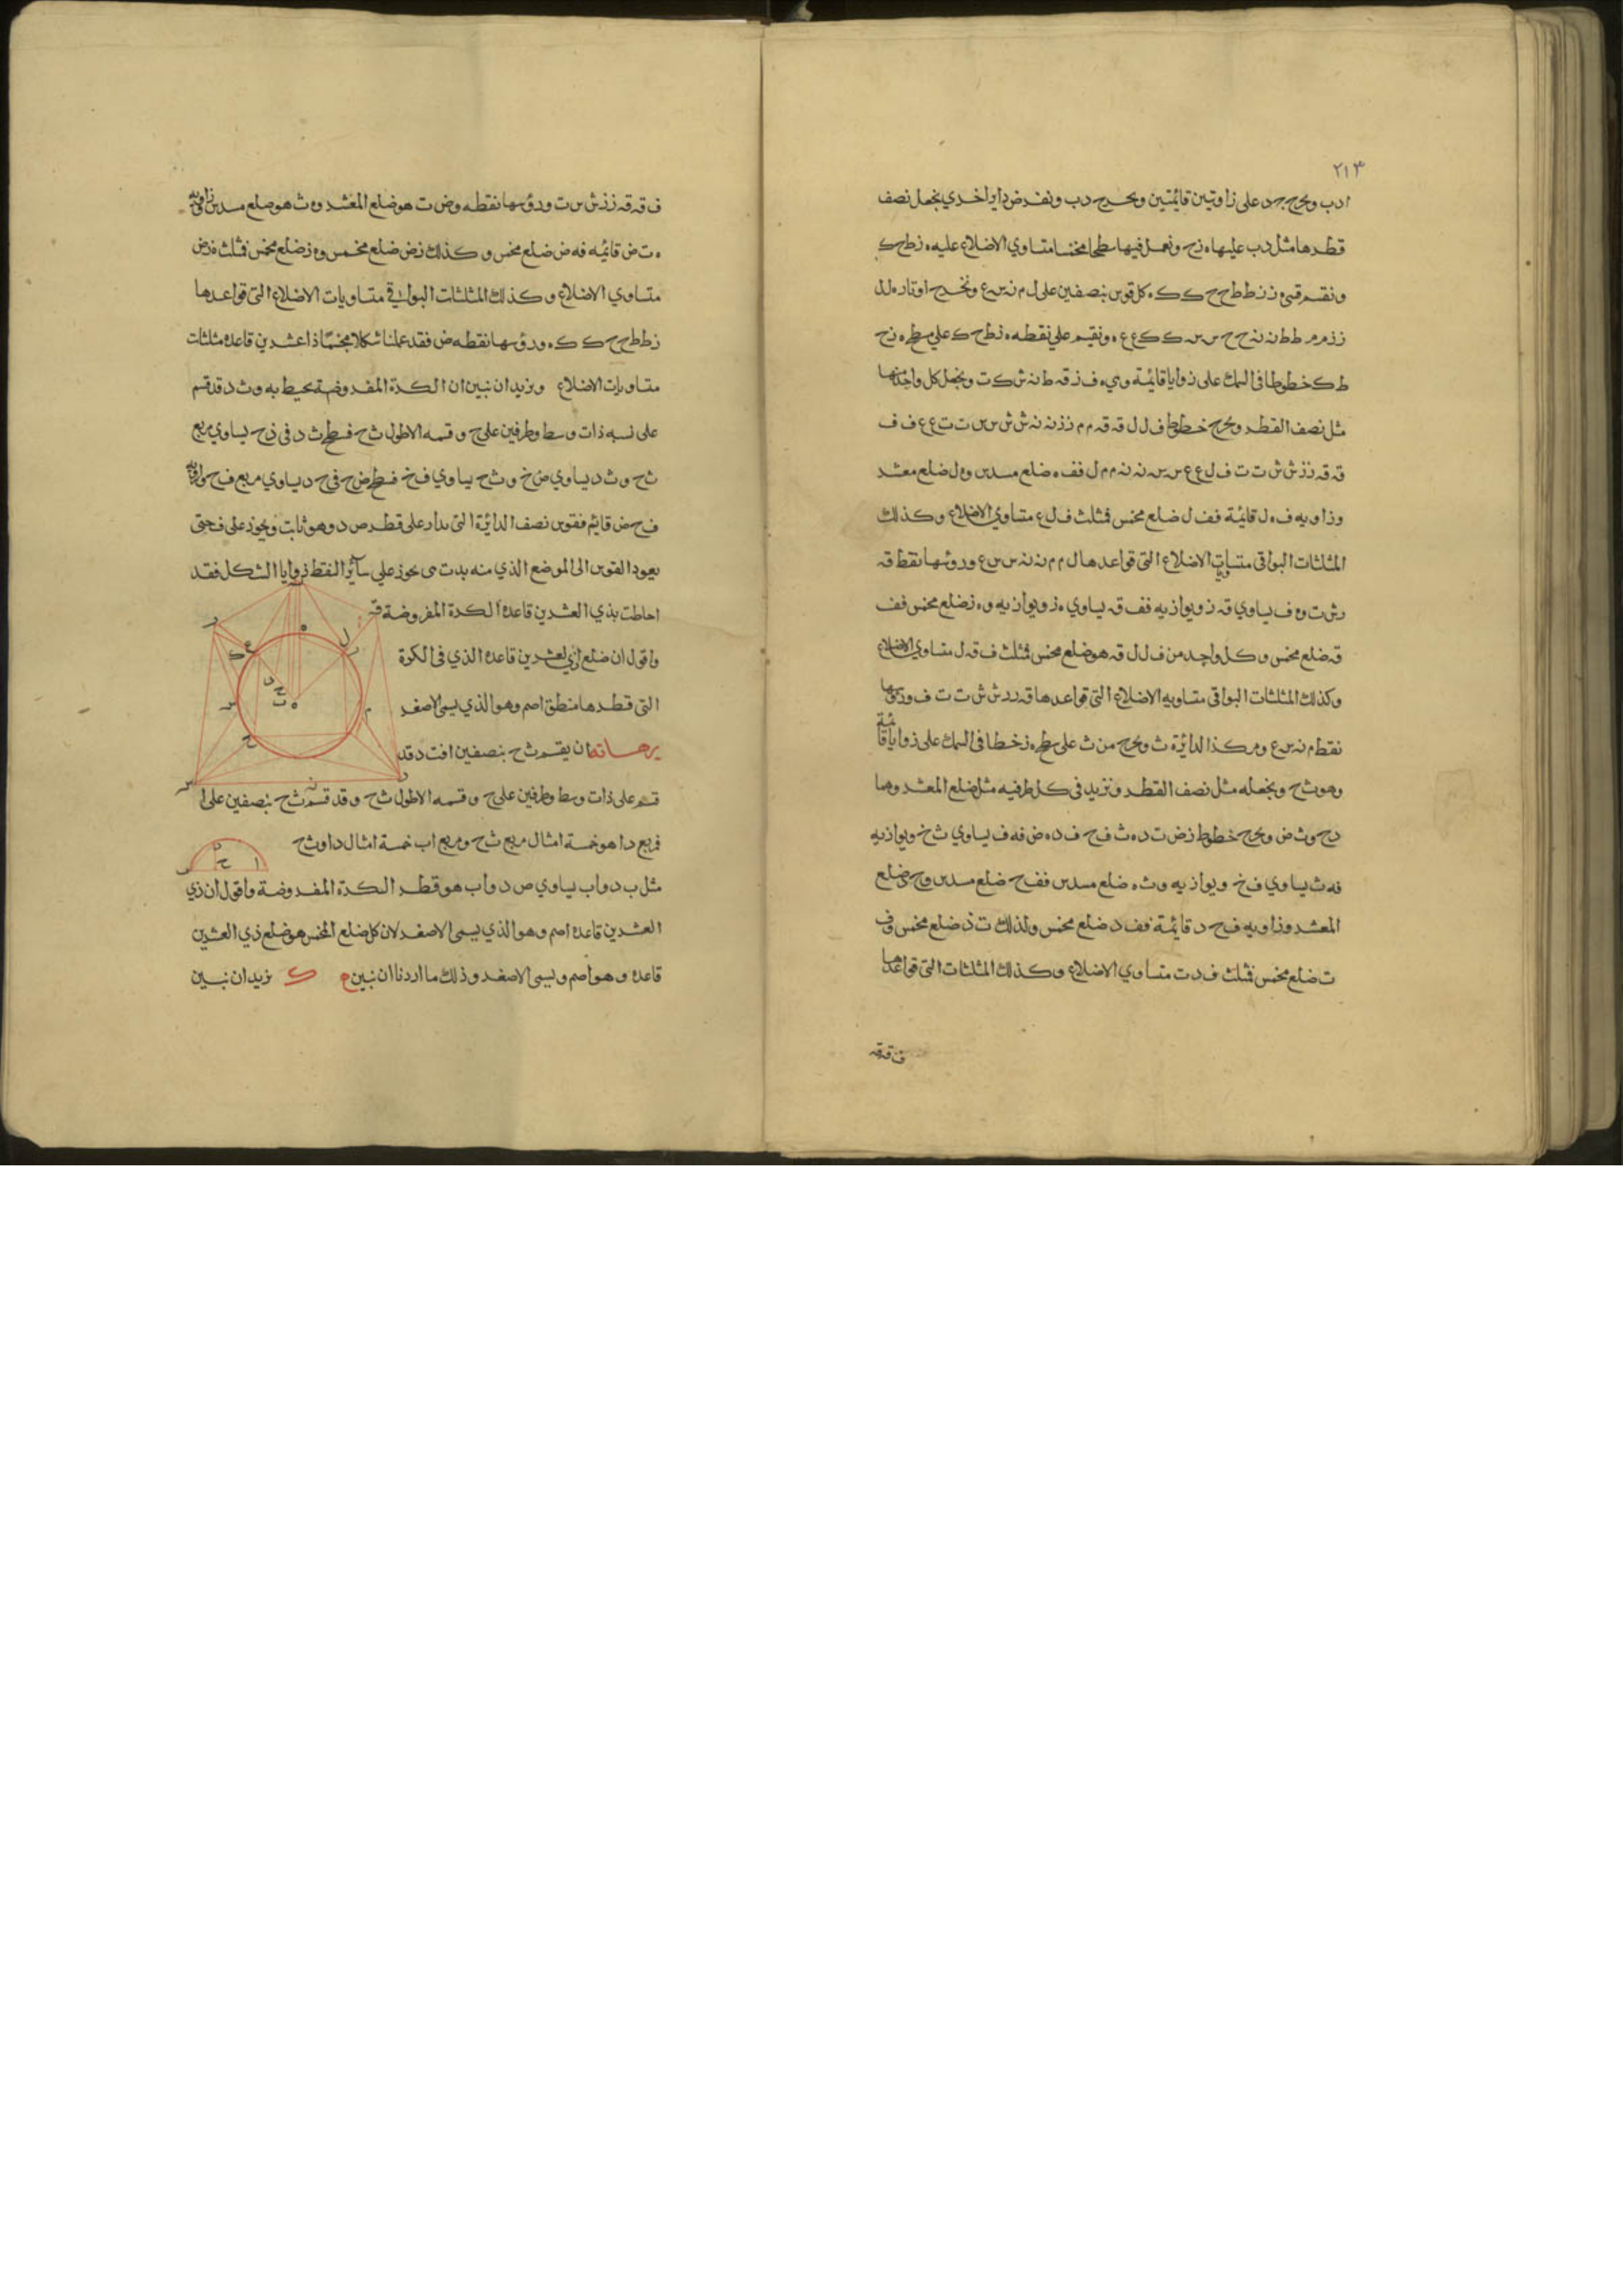 ٢١٣
ا د ب ونخرج ج د على زاويتين قائمتين ونخرج د ب ونفرض دايرة اخري نجعل نصف
قطرها مثل د ب عليها ه ز ح ونعمل فيها سطحا مخمسا متساوي الاضلاع عليه ه ز ط ح ك
ونقسم قسي ه ز ز ط ط ح ح ك ك ه كل قوس بنصفين على ل م ن س ع ونخرج اوتار ه ل ل
ز ز م م ط ط ن ن ح ح س س ك ك ع ع ه ونقيم علي نقطه ه ز ط ح ك علي سطح ه ز ح
ط ك خطوطا في السمك على زوايا قايمة وهي ه ف ز ق ط ن ش ك ت ونجعل كل واحد منها
مثل نصف القطر ونخرج خطوط ف ل ل ق ق م م ز ز ن ن ش ش س س ت ت ع ع ف ف
ق ق ز ز ش ش ت ت ف ل ع ع س س ن ن م م ل فف ه ضلع مسدس و ه ل ضلع معشر
وزاويه ف ه ل قائمة فف ل ضلع مخمس فمثلث ف ل ع متساوي الاضلاع وكذلك
المثلثات البواقي متساويات الاضلاع التي قواعدها ل م م ن ن س س ع ورؤسها نقط ق
ر ش ت و ه ف يساوي ق ز ويوازيه فف ق يساوي ه ز ويوازيه و ه ز ضلع مخمس فف
ق ضلع مخمس وكل واحد من ف ل ل ق هو ضلع مخمس فمثلث ف ق ل متساوي الاضلاع
وكذلك المثلثات البواقي متساويه الاضلاع التي قواعدها ق ر ر ش ش ت ت ف ورؤسها
نقط م ن س ع ومركز الدائرة ث ونخرج من ث على سطح ه ز خطا في السمك على زوايا قائمة
وهو ث ح ونجعله مثل نصف القطر ونزيد في كل طرفيه مثل ضلع المعشر وهما
د ح و ث ض ونخرج خطوط ز ض ت د ه ث ف ح ف د ه ض فه ف يساوي ث خ ويوازيه
فه ث يساوي ف خ ويوازيه و ث ه ضلع مسدس فف ح ضلع مسدس و ح د ضلع
المعشر وزاويه ف ح د قائمة فف د ضلع مخمس ولذلك ت د ضلع مخمس و ف
ت ضلع مخمس فمثلث ف د ت متساوي الاضلاع وكذلك المثلثات التي قواعدها
ف ق ق
ف ق ق ز ز ش ش ت ورؤسها نقطه و ض ت هو ضلع المعشر و ه ث هو ضلع مسدس وزاويه
ه ث ض قائمه فه ض ضلع مخمس وكذلك ز ض ضلع مخمس و ه ز ضلع مخمس فمثلث ه ز ض
متساوي الاضلاع وكذلك المثلثات البواقي متساويات الاضلاع التي قواعدها
ز ط ط ح ح ك ك ه ورؤسها نقطه ض فقد عملنا شكلا مجسما ذا عشرين قاعده مثلثات
متساويات الاضلاع ونريد ان نبين ان الكرة المفروضة تحيط به و ث د قد قسم
على نسبه ذات وسط وطرفين على ح وقسمه الاطول ث ح فسطح ث د في د ح يساوي مربع
ث ح و ث د يساوي ض خ و ث ح يساوي ف خ فسطح ض ح في ح د يساوي مربع ف ح وزاويه
ف ح ض قائم فقوس نصف الدائرة التي تدار على قطر ض د وهو ثابت ويجوز على ف حتى
يعود القوس الى الموضع الذي منه بدت تجوز علي سائر النقط زوايا الشكل فقد
احاطت بذي العشرين قاعدة الكرة المفروضة
واقول ان ضلع ذي العشرين قاعده الذي في الكرة
التي قطرها منطق اصم وهو الذي يسمى الاصغر
برهانه ان يقسم ث ح بنصفين ا ف ث د قد
قسم على ذات وسط وطرفين على ح وقسمه الاطول ث ح وقد قسم ث ح بنصفين على ا
فمربع د ا هو خمسة امثال مربع ث ح ومربع ا ب خمسة امثال د ا و ث ح
مثل ب د و ا ب يساوي ض د و ا ب هو قطر الكرة المفروضة واقول ان ذي
العشرين قاعده اصم وهو الذي يسمى الاصغر لان كل ضلع المخمس هو ضلع ذي العشرين
قاعده وهو اصم ويسمى الاصغر وذلك ما اردنا ان نبين ك نريد ان نبين